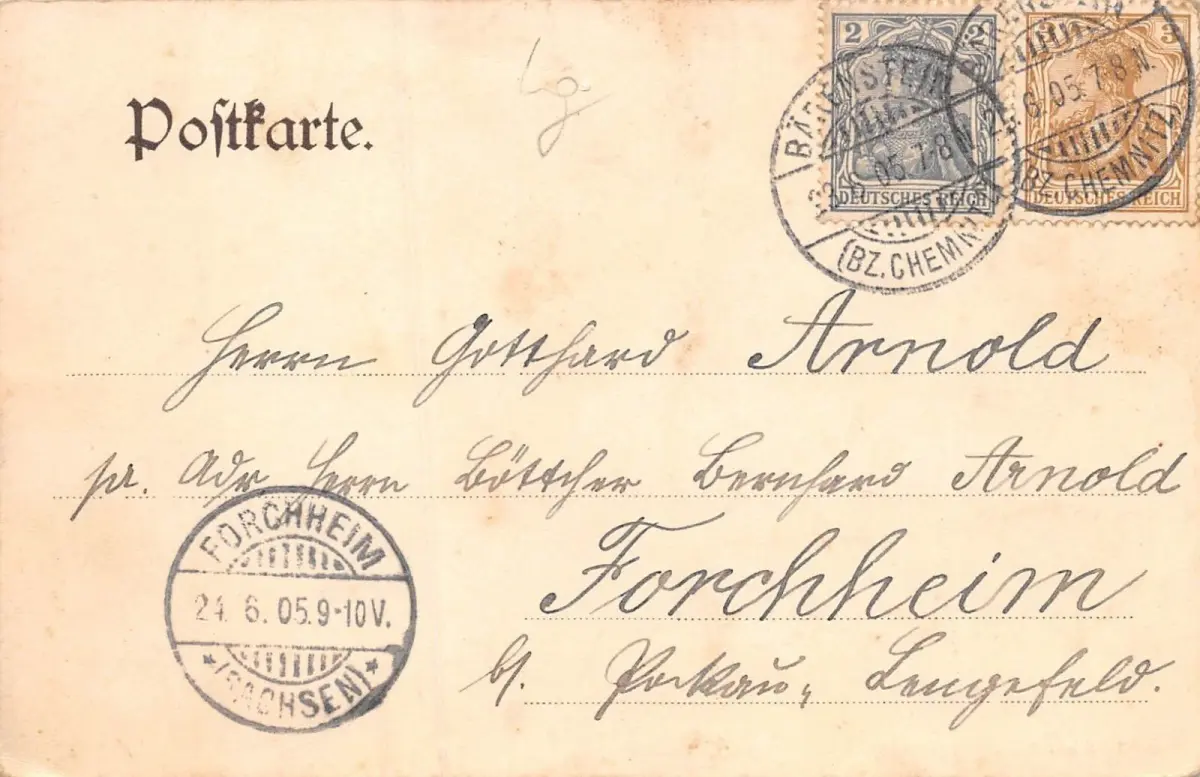 Postkarte.
2 2 3
BÄRENSTEIN
23.6.05.7-8N.
(BZ. CHEMNITZ)
6.05.7-8N.
(BZ. CHEMNITZ)
DEUTSCHES REICH
DEUTSCHES REICH
Herrn Gotthard Arnold
pr. Adr Herrn Böttcher Bernhard Arnold
FORCHHEIM
24.6.05.9-10V.
*(SACHSEN)*
Forchheim
b/. Pockau-Lengefeld.